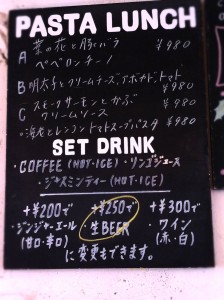 PASTA LUNCH
A 菜の花と豚バラ
ペペロンチーノ ¥980
B 明太子とクリームチーズアボカドトマト ¥980
C スモークサーモンとかぶ
クリームソース ¥980
・海老とレンコントマトスープパスタ ¥980
SET DRINK
・COFFEE (HOT・ICE) ・リンゴジュース
・ジャスミンティー (HOT・ICE)
+¥200で +¥250で +¥300で
・ジンジャーエール ・生BEER ・ワイン
(甘口・辛口) (赤・白)
に変更もできます。